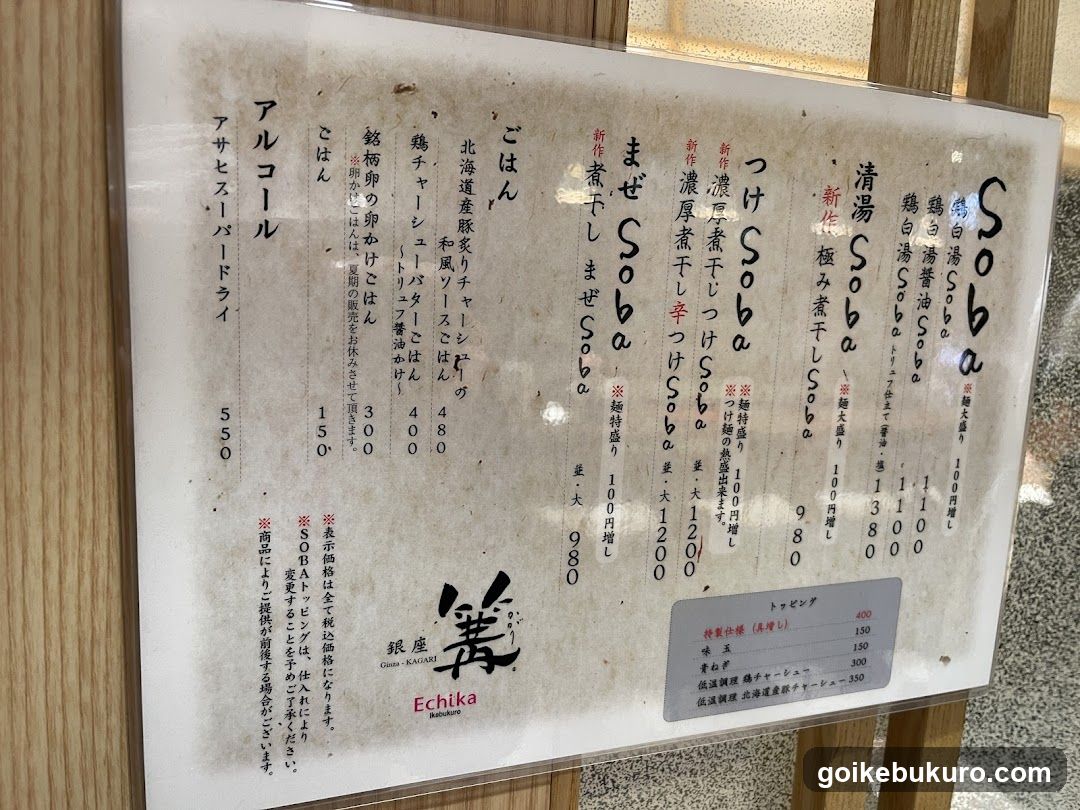 Soba ※麺大盛り 100円増し
鶏白湯Soba 1100
鶏白湯醤油Soba 1100
鶏白湯Soba トリュフ仕立て(醤油・塩) 1380
清湯Soba ※麺大盛り 100円増し
新作 極み煮干しSoba 980
つけSoba ※麺特盛り 100円増し
※つけ麺の熱盛出来ます。
新作 濃厚煮干しつけSoba 並・大 1200
新作 濃厚煮干し辛つけSoba 並・大 1200
まぜSoba ※麺特盛り 100円増し
新作 煮干し まぜSoba 並・大 980
ごはん
北海道産豚炙りチャーシューの
和風ソースごはん 480
鶏チャーシューバターごはん 400
～トリュフ醤油かけ～
銘柄卵の卵かけごはん 300
※卵かけごはんは、夏期の販売をお休みさせて頂きます。
ごはん 150
アルコール
アサヒスーパードライ 550
トッピング
特製仕様(具増し) 400
味玉 150
青ねぎ 150
低温調理 鶏チャーシュー 300
低温調理 北海道産豚チャーシュー 350
※表示価格は全て税込価格になります。
※SOBAトッピングは、仕入れにより
変更することを予めご了承ください。
※商品によりご提供が前後する場合がございます。
篝
かがり
銀座
Ginza - KAGARI
Echika
Ikebukuro
goikebukuro.com